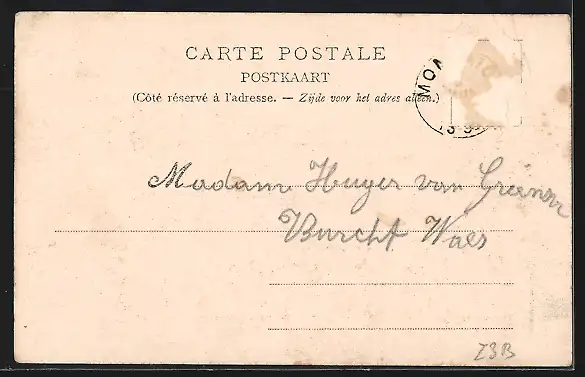 CARTE POSTALE
POSTKAART
(Côté réservé à l'adresse. — Zijde voor het adres alleen.)
Madame Huyer van
Burcht Waes
Z3B